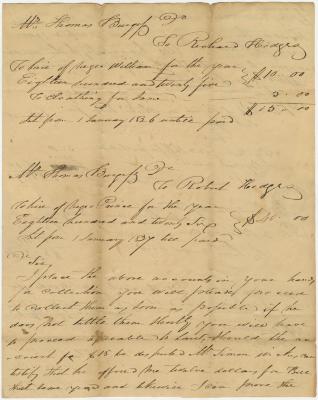 Mr. Thomas Burgess Dr
To Richard Hodges
To hire of Negro William for the year
Eighteen hundred and twenty five $10.00
To Cloathing for same 5.00
$15.00
Int from 1 January 1826 untill paid
Mr. Thomas Burgess Dr
To Robert Hodges
To hire of Negro Prince for the year
Eighteen hundred and twenty Six $40.00
Int from 1 January 1827 till paid
Sir,
I place the above accounts in your hands
for collection you will please proceed
to collect them as soon as possible if he
does not settle them shortly you will have
to proceed agreeable to Law, Should the ac-
count for $15 be disputed Mr. Simon
testify that he offered me twelve dollars for
that same year and likewise I can prove the